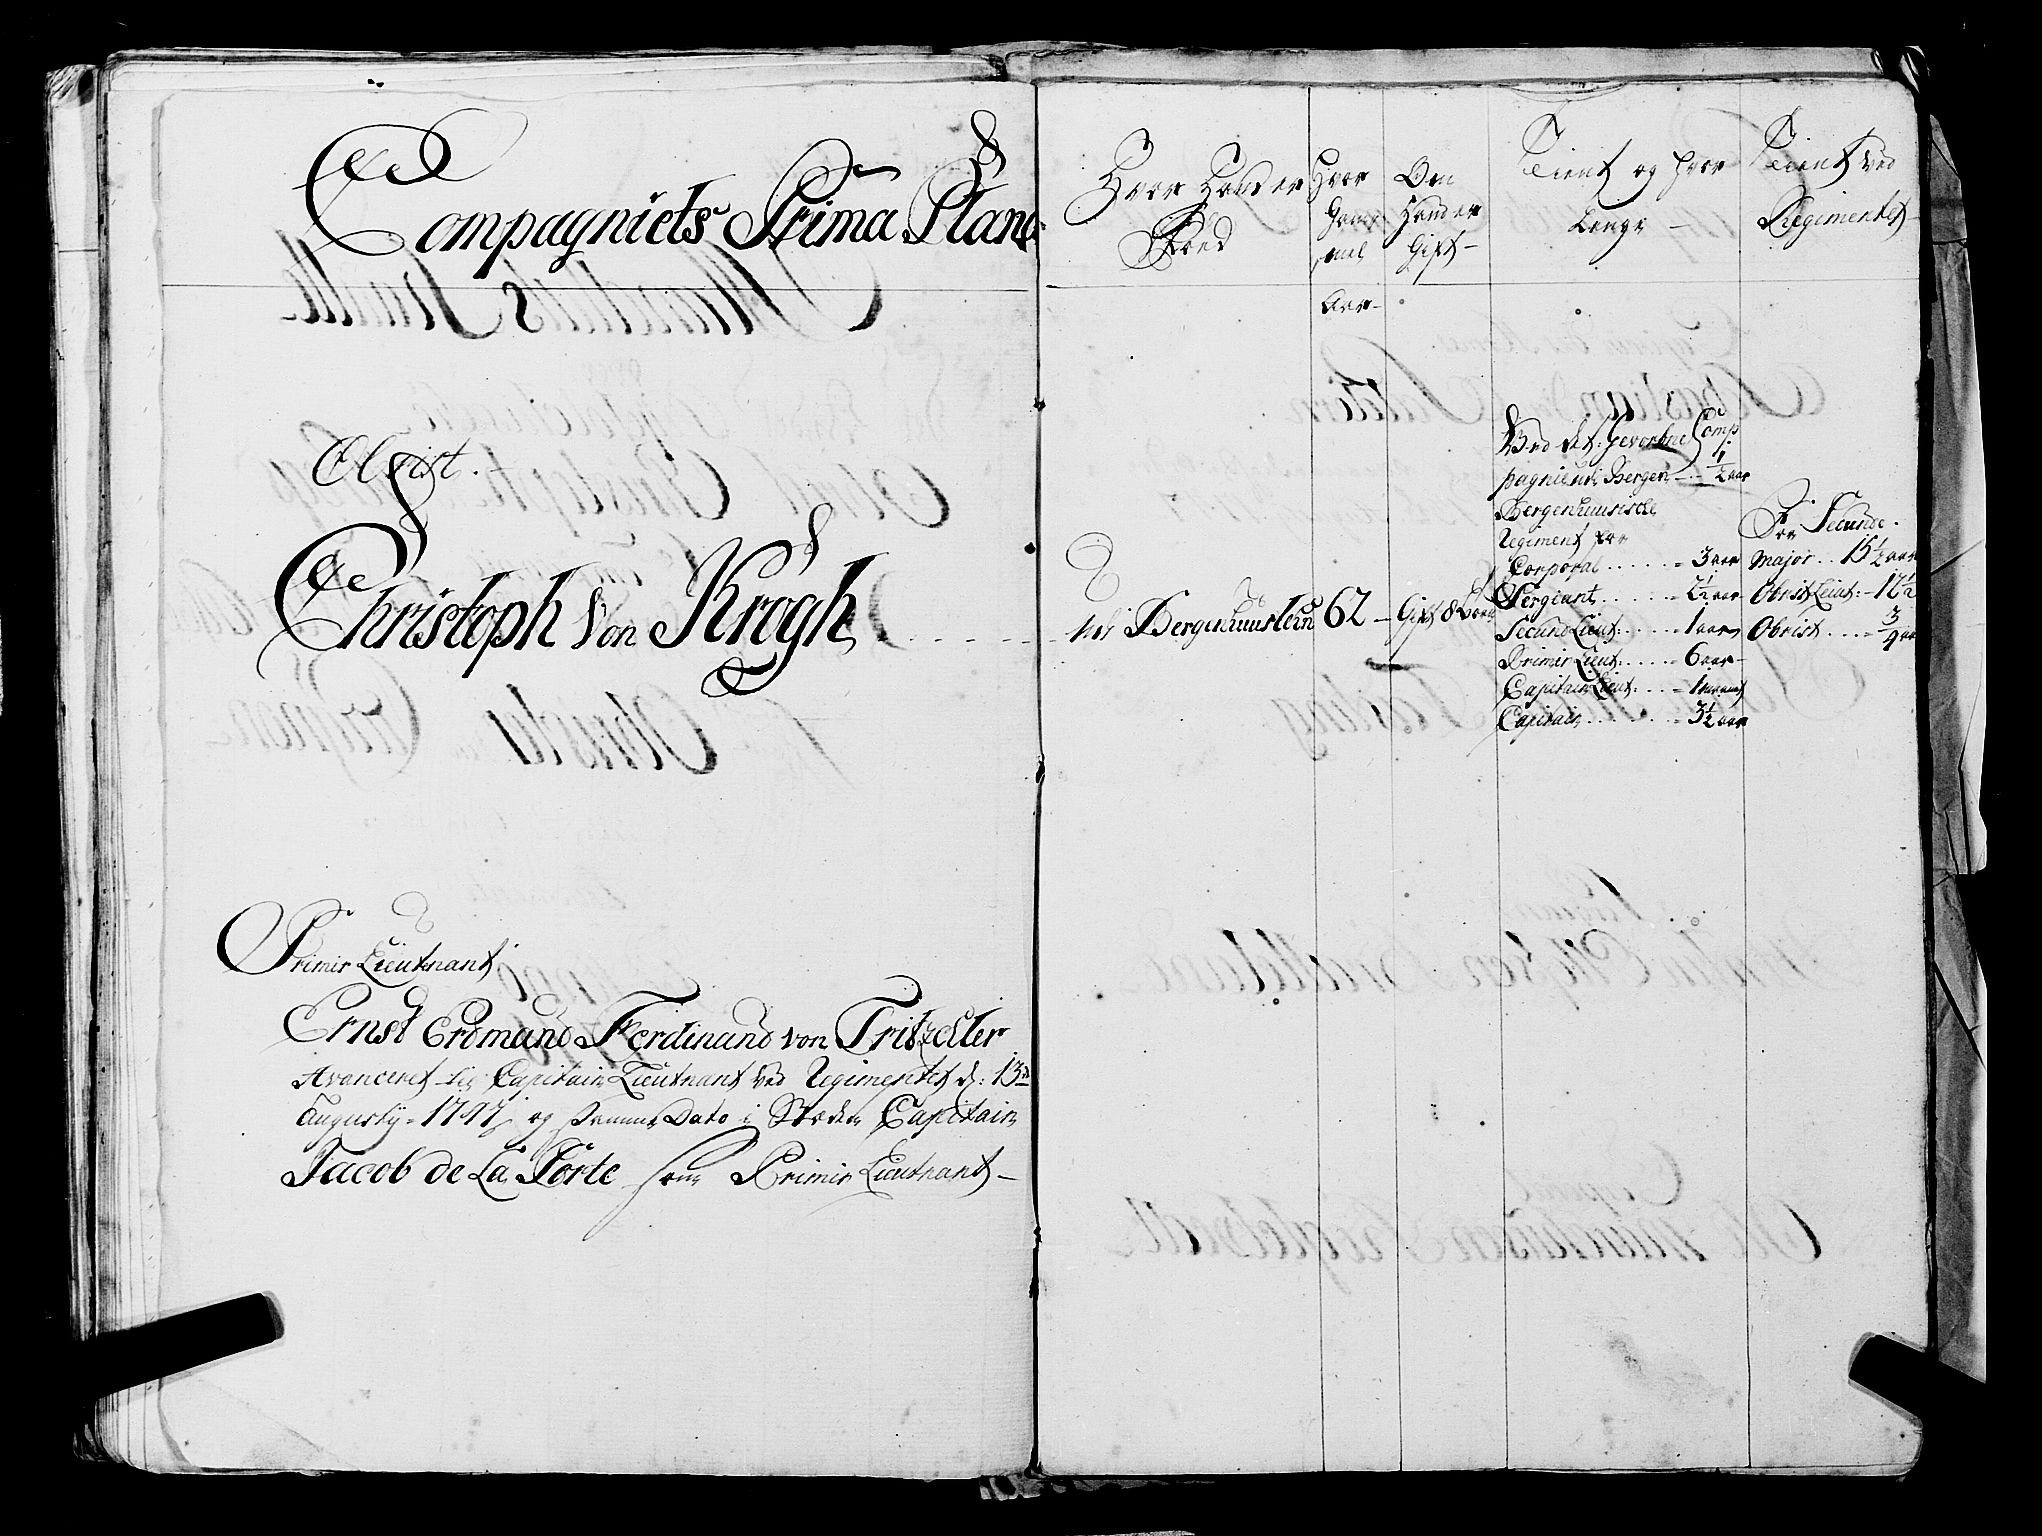 Compagniets Prima Plana
Obrist.
Christoph Von Krogh
Primir Lieutnant
Ernst Erdmand Ferdinand von Tritzchler
Avanceret til Capitain Lieutnant Ved Regimentet d: 13de
Augusty 1747 og samme Dato i Stæden Capitain
Jacob de La Porte som Primir Lieutnant
Hvor Hand er
Fød
Hvor
Gam̄
mel
Aar
Om
Hand er
Gift
Tient og hvor
Lenge
Tient Ved
Regimentet
Bergenhuus Lehn
62
Gift 8 Børn
Ved det Gevorbne Comp
pagnie udi Bergen 1/2 aar
Bergenhuusische
Regiment for
Corporal 3 aar
Sergiant 2 1/2 aar
Secund Lieut: 1 aar
Primir Lieut: 6 aar
Capitain Lieut: 1
Capitain 3 1/2 aar
For Secunde
Major 15 1/2 aar
Obrist Lieut: 12 1/2
Obrist